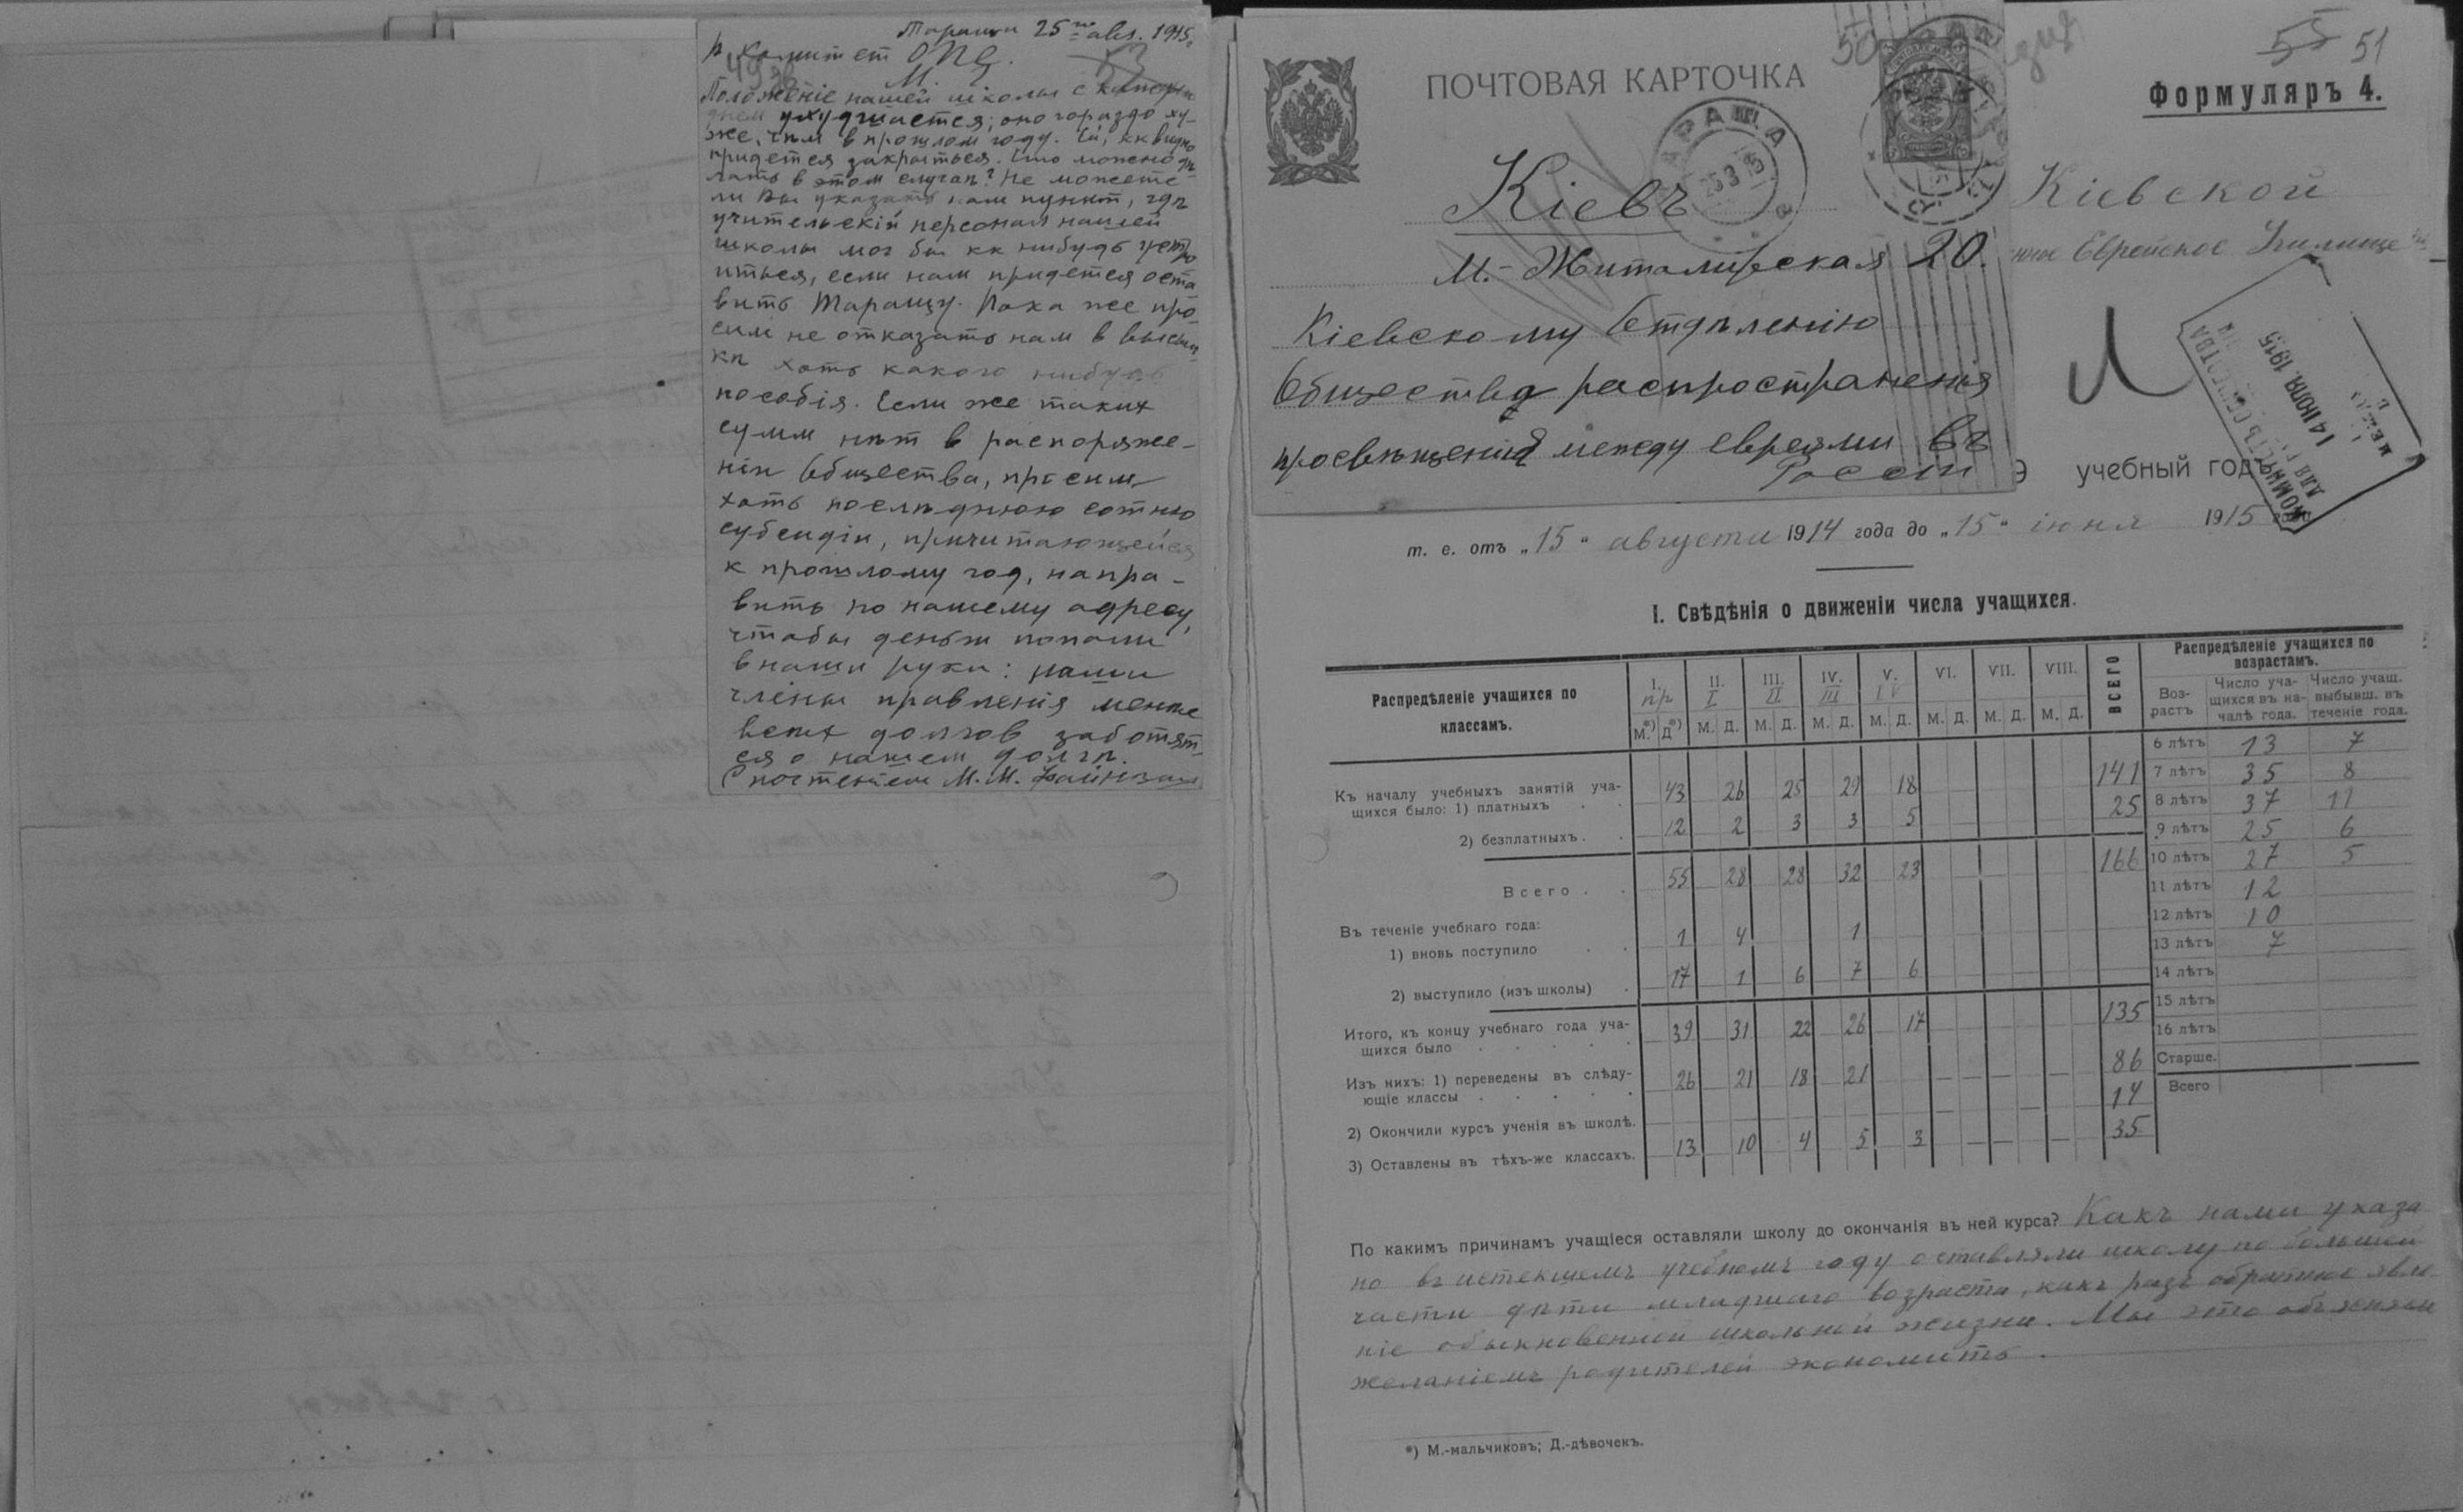 Тараща 25го авг. 1915.
В Комитет ОПЕ.
М. Г.
Положеніе нашей школы с каждым
днем ухудшается; оно гораздо ху-
же, чѣм в прошлом году. Ей, кк видно
придется закрыться. Что можно дѣ
лать в этом случаѣ? Не можете
ли Вы указать нам пункт, гдѣ
учительскій персонал нашей
школы мог бы кк нибудь устро
иться, если нам придется оста
вить Таращу. Пока же про
сим не отказать нам в высыл-
кѣ хоть какого нибудь
пособія. Если же таких
сумм нѣт в распоряже-
ніи Общества, просим
хоть послѣднюю сотню
субсидіи, причитающейся
к прошлому год, напра-
вить по нашему адресу,
чтобы деньги попали
в наши руки: наши
члены правленія менше
всѣх долгов заботят-
ся о нашем долгѣ.
С почтеніем М. М.
ПОЧТОВАЯ КАРТОЧКА
ТАРАЩА
Кіевъ
М.-Житомирская 20.
Кіевскому Отдѣленію
Общества распространенія
просвѣщенія между евреями въ
Россіи
50
55 51
Формуляръ 4.
Кіевской
Еврейское Училище
КОМИТЕТЪ ОБЩЕСТВА
14 ІЮЛЯ 1915
учебный годъ
т. е. отъ „15“ августа 1914 года до „15“ іюня 1915 года
I. Свѣдѣнія о движеніи числа учащихся.
Распредѣленіе учащихся по классамъ. I. II. III. IV. V. VI. VII. VIII. ВСЕГО
пр I II III IV
М.*) Д*) М. Д. М. Д. М. Д. М. Д. М. Д. М. Д. М. Д.
Къ началу учебныхъ занятій уча-
щихся было: 1) платныхъ 43 26 25 29 18 141
2) безплатныхъ 12 2 3 3 5 25
Всего 55 28 28 32 23 166
Въ теченіе учебнаго года:
1) вновь поступило 1 4 1
2) выступило (изъ школы) 17 1 6 7 6
Итого, къ концу учебнаго года уча-
щихся было 39 31 22 26 17 135
Изъ нихъ: 1) переведены въ слѣду-
ющіе классы 26 21 18 21 86
2) Окончили курсъ ученія въ школѣ. 14
3) Оставлены въ тѣхъ-же классахъ. 13 10 4 5 3 35
Распредѣленіе учащихся по
возрастамъ.
Воз-
растъ
Число уча-
щихся въ на-
чалѣ года.
Число учащ.
выбывш. въ
теченіе года.
6 лѣтъ 13 7
7 лѣтъ 35 8
8 лѣтъ 37 11
9 лѣтъ 25 6
10 лѣтъ 27 5
11 лѣтъ 12
12 лѣтъ 10
13 лѣтъ 7
14 лѣтъ
15 лѣтъ
16 лѣтъ
Старше.
Всего
По какимъ причинамъ учащіеся оставляли школу до окончанія въ ней курса? Какъ нами указа
но въ истекшемъ учебномъ году оставляли школу по большей
части дѣти младшаго возраста, какъ разъ обратное явле
ніе обыкновенной школьной жизни. Мы это объясняем
желаніемъ родителей экономить.
*) М.-мальчиковъ; Д.-дѣвочекъ.